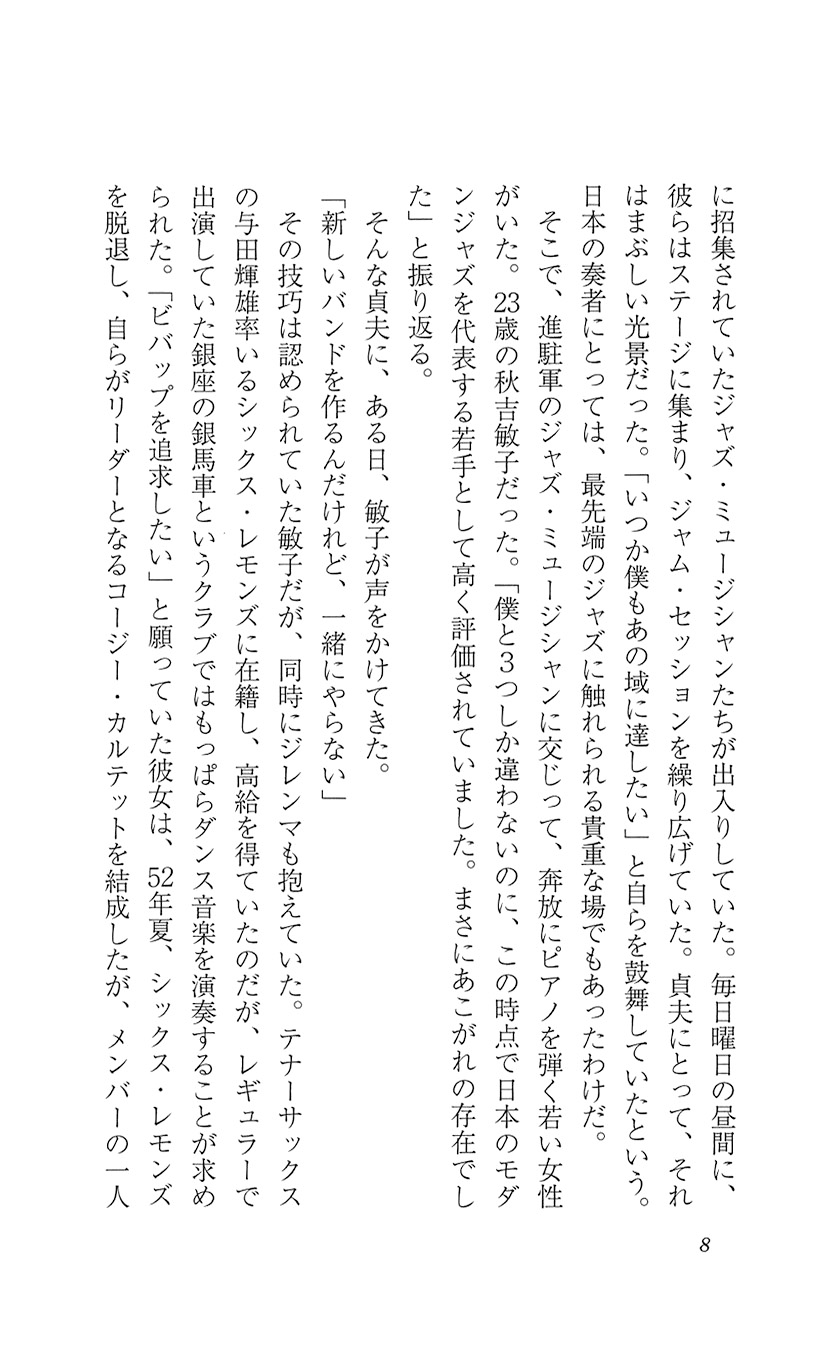 に招集されていたジャズ・ミュージシャンたちが出入りしていた。毎日曜日の昼間に、
彼らはステージに集まり、ジャム・セッションを繰り広げていた。貞夫にとって、それ
はまぶしい光景だった。「いつか僕もあの域に達したい」と自らを鼓舞していたという。
日本の奏者にとっては、最先端のジャズに触れられる貴重な場でもあったわけだ。
　そこで、進駐軍のジャズ・ミュージシャンに交じって、奔放にピアノを弾く若い女性
がいた。23歳の秋吉敏子だった。「僕と３つしか違わないのに、この時点で日本のモダ
ンジャズを代表する若手として高く評価されていました。まさにあこがれの存在でし
た」と振り返る。
　そんな貞夫に、ある日、敏子が声をかけてきた。
「新しいバンドを作るんだけれど、一緒にやらない」
　その技巧は認められていた敏子だが、同時にジレンマも抱えていた。テナーサックス
の与田輝雄率いるシックス・レモンズに在籍し、高給を得ていたのだが、レギュラーで
出演していた銀座の銀馬車というクラブではもっぱらダンス音楽を演奏することが求め
られた。「ビバップを追求したい」と願っていた彼女は、52年夏、シックス・レモンズ
を脱退し、自らがリーダーとなるコージー・カルテットを結成したが、メンバーの一人
8